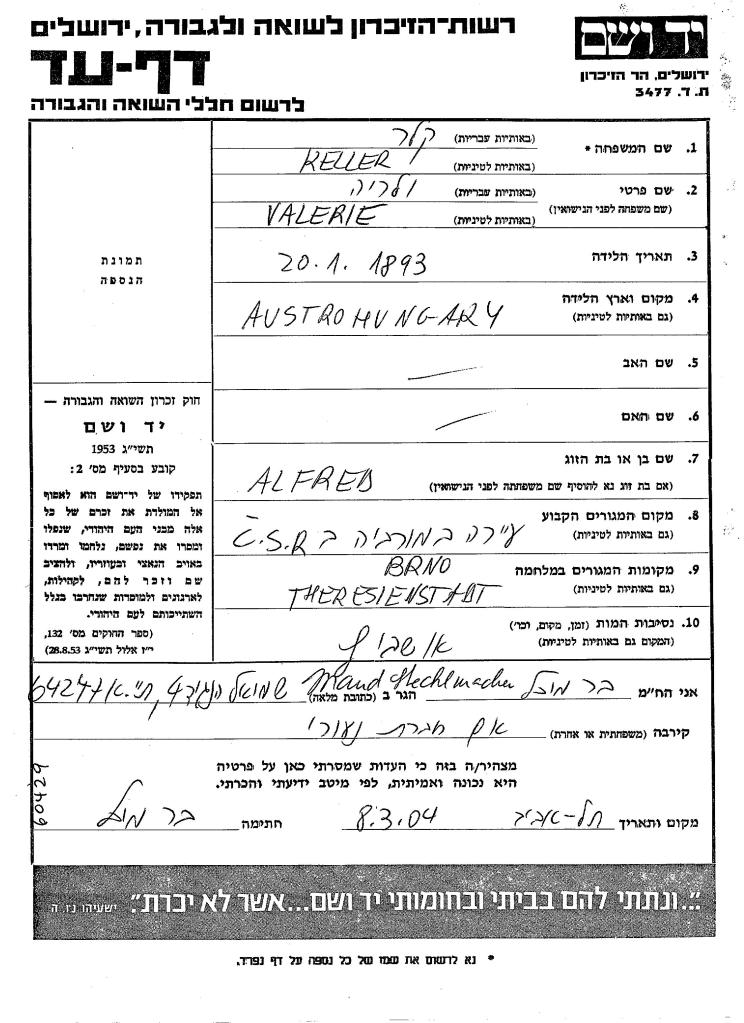 רשות־הזיכרון לשואה ולגבורה, ירושלים
דף-עד
לרשום חללי השואה והגבורה
יד ושם
ירושלים, הר הזיכרון
ת. ד. 3477
1. שם המשפחה* (באותיות עבריות) קלר
(באותיות לטיניות) KELLER
2. שם פרטי (באותיות עבריות) ולריה
(שם משפחה לפני הנישואין) (באותיות לטיניות) VALERIE
3. תאריך הלידה 20.1.1893
4. מקום וארץ הלידה
(גם באותיות לטיניות) AUSTROHUNGARY
5. שם האב —
6. שם האם —
7. שם בן או בת הזוג ALFRED
(אם בת זוג נא להוסיף שם משפחתה לפני הנישואין)
8. מקום המגורים הקבוע
(גם באותיות לטיניות) עיירה במורביה ב Č.S.R
9. מקומות המגורים במלחמה BRNO
(גם באותיות לטיניות) THERESIENSTADT
10. נסיבות המות (זמן, מקום, וכו')
(המקום גם באותיות לטיניות) אושביץ
תמונת
הנספה
חוק זכרון השואה והגבורה —
יד ושם
תשי"ג 1953
קובע בסעיף מס' 2:
תפקידו של יד-ושם הוא לאסוף
אל המולדת את זכרם של כל
אלה מבני העם היהודי, שנפלו
ומסרו את נפשם, נלחמו ומרדו
באויב הנאצי ובעוזריו, ולהציב
שם וזכר להם, לקהילות,
לארגונים ולמוסדות שנחרבו בגלל
השתייכותם לעם היהודי.
(ספר החוקים מס' 132,
י"ז אלול תשי"ג 28.8.53)
אני הח"מ בר מוד הגר ב (כתובת מלאה) שמואל הנגיד 4, ת"א 64247
קירבה (משפחתית או אחרת) אם חברת נעורי
מצהיר/ה בזה כי העדות שמסרתי כאן על פרטיה
היא נכונה ואמיתית, לפי מיטב ידיעתי והכרתי.
מקום ותאריך תל-אביב 8.3.04 חתימה בר מוד
60429
"...ונתתי להם בביתי ובחומותי יד ושם...אשר לא יכרת". ישעיהו נז, ה
* נא לרשום את שמו של כל נספה על דף נפרד.